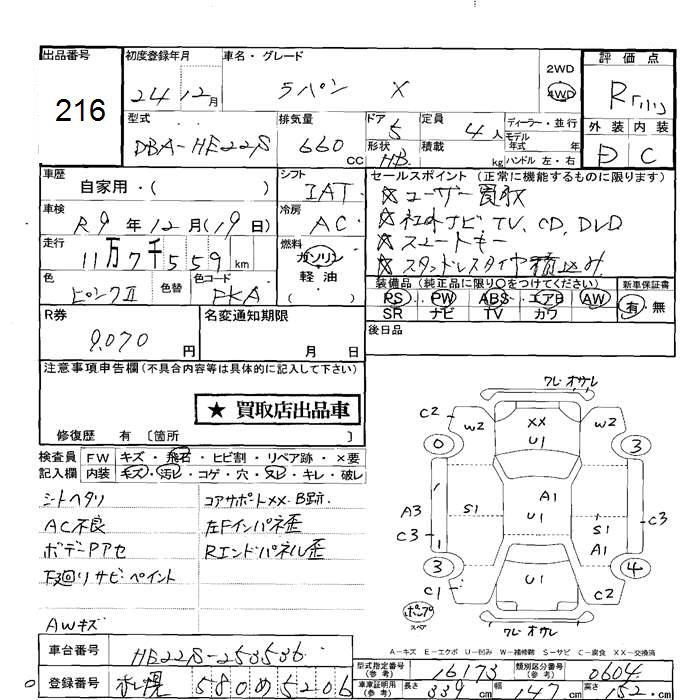 出品番号
216
初度登録年月
24年12月
車名・グレード
ラパン X
2WD
4WD
評価点
R
外装 内装
D C
型式
DBA-HE22S
排気量
660
CC
ドア
5
形状
HB
定員
4人
積載
kg
ディーラー・並行
モデル
年式 年
ハンドル 左・右
車歴
自家用・( )
シフト
IAT
セールスポイント (正常に機能するものに限ります)
☆ユーザー買取
☆社外ナビ TV、CD、DVD
☆スマートキー
☆スタッドレスタイヤ積込み
車検
R9年12月(19日)
冷房
AC
走行
11万7千559km
燃料
ガソリン
軽油
( )
色
ピンクⅡ
色替
色コード
PKA
装備品 (純正品に限り〇をつけてください)
PS PW ABS エアB AW
SR ナビ TV カワ
新車保証書
有・無
R券
9,070円
名変通知期限
月 日
後日品
注意事項申告欄(不具合内容等は具体的に記入して下さい)
★買取店出品車
修復歴 有 〔箇所 〕
検査員 FW キズ・飛石・ヒビ割・リペア跡・×要
記入欄 内装 キズ・汚レ・コゲ・穴・スレ・キレ・破レ
シートヘタリ
AC不良
ボデーPアセ
下廻りサビ・ペイント
AWキズ
コアサポートXX・B跡
左Fインパネ歪
Rエンドパネル歪
ワレ・オサレ
C2 W2 XX U1 W2
0 3
A3 S1 A1 U1 S1 C3
C3 A1
3 4
C1 U1 C2
スペア
ワレ・オサレ
A-キズ E-エクボ U-凹み W-補修跡 S-サビ C-腐食 XX-交換済
車台番号
HE22S-253536
登録番号
札幌 580 め 5206
型式指定番号
(参考)
16173
類別区分番号
(参考)
0604
車庫証明用
(参考)
長さ 339cm 幅 147cm 高さ 152cm